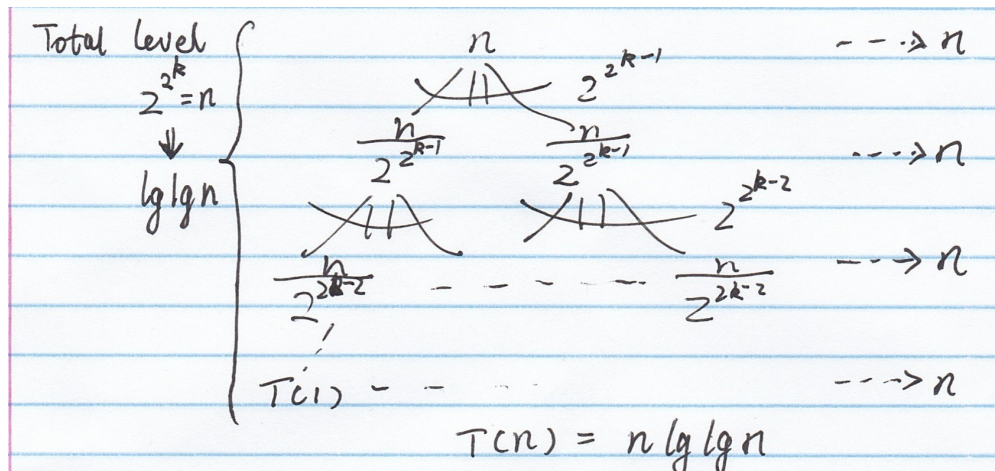 Total level
2^{2^k} = n
⇓
lg lg n
n ----> n
2^{2^{k-1}}
n/2^{2^{k-1}} n/2^{2^{k-1}} ----> n
2^{2^{k-2}}
n/2^{2^{k-2}} - - - - - n/2^{2^{k-2}} ----> n
T(1) - - - - ----> n
T(n) = n lg lg n